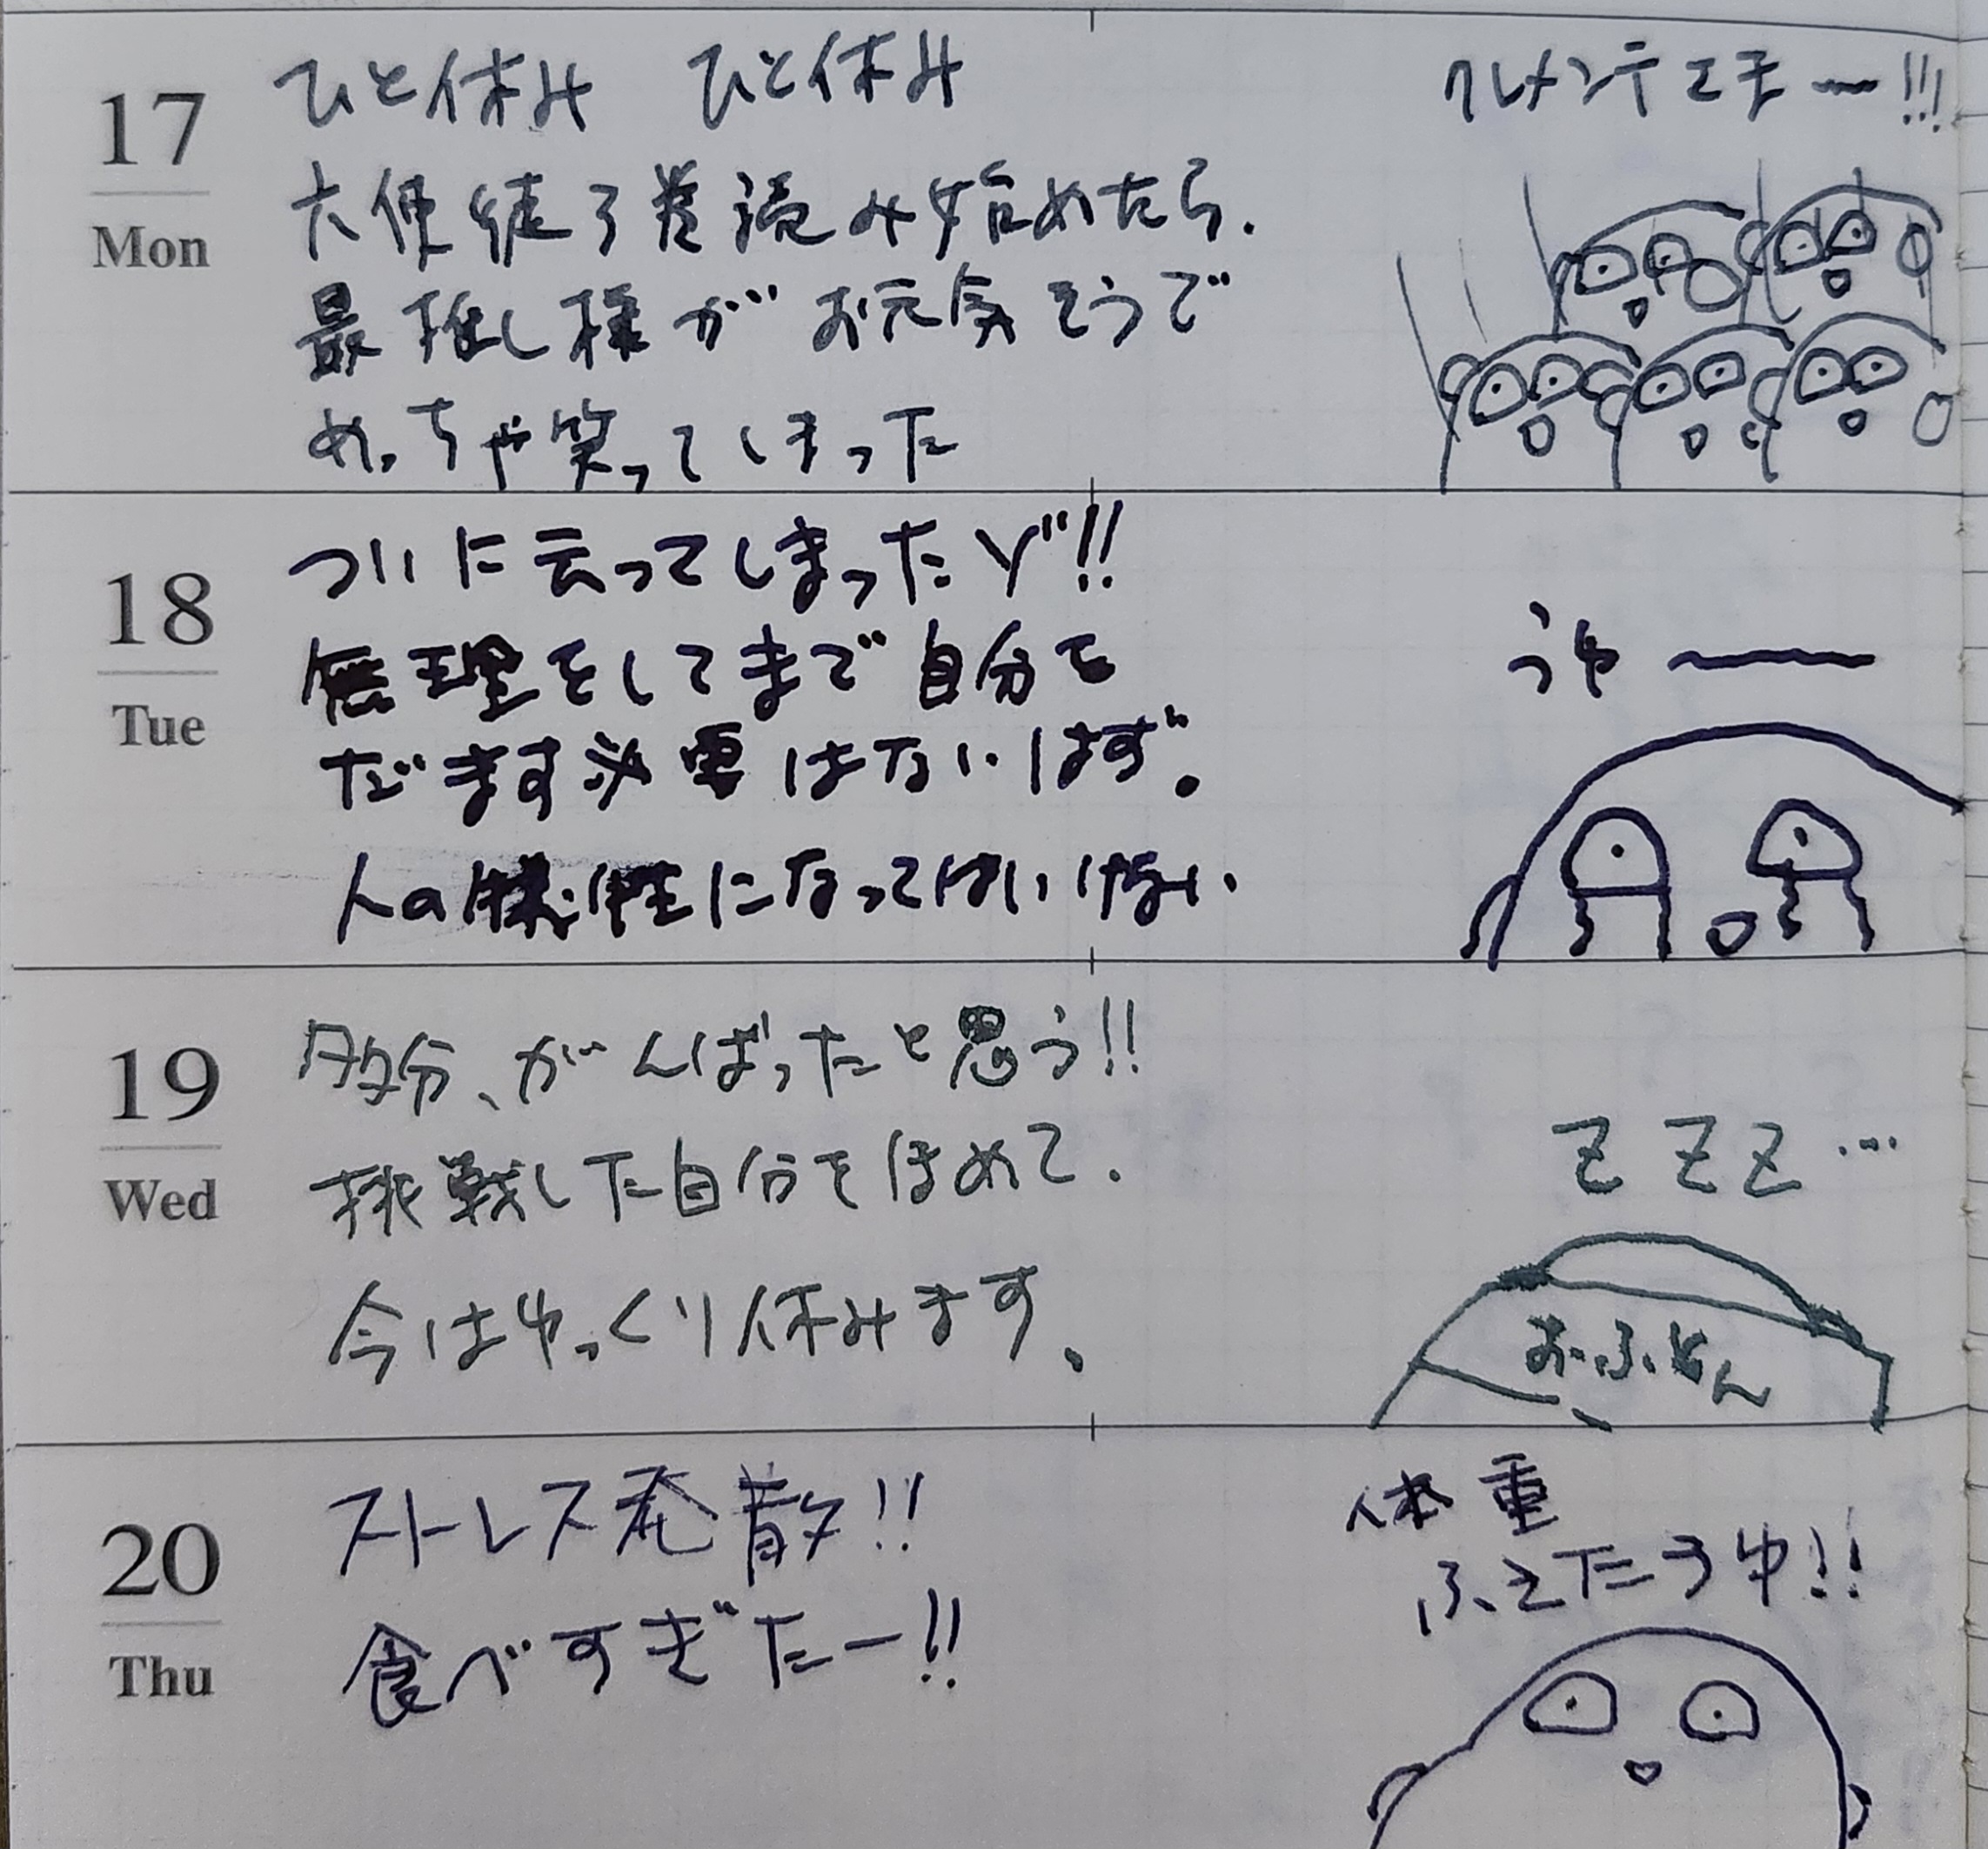 17
Mon
ひと休み ひと休み
大使徒3巻読み始めたら、
最推し様がお元気そうで
めっちゃ笑ってしまった
クレメンテエモー!!!
18
Tue
ついに云ってしまったゾ!!
無理をしてまで自分を
だます必要はないはず。
人の犠牲になってはいけない
うゆー
19
Wed
多分、がんばったと思う!!
挑戦した自分をほめて、
今はゆっくり休みます。
ZZZ…
おふとん
20
Thu
ストレス発散!!
食べすぎたー!!
体重
ふえたうゆ!!